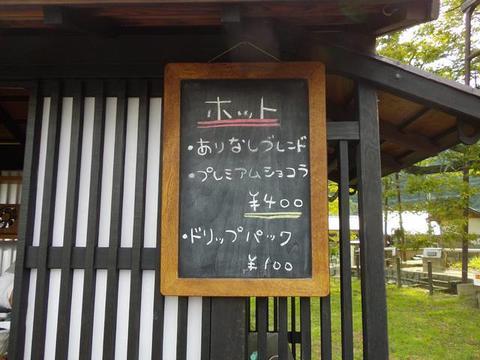 ホット
・ありなしブレンド
・プレミアムショコラ
¥400
・ドリップパック
¥100